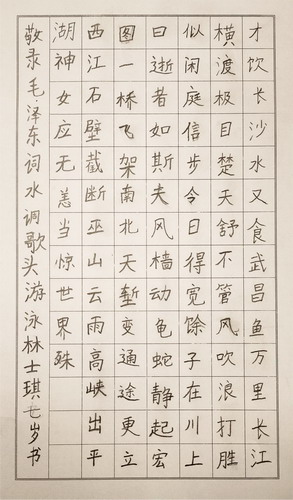 才饮长沙水又食武昌鱼万里长江
横渡极目楚天舒不管风吹浪打胜
似闲庭信步今日得宽馀子在川上
曰逝者如斯夫风樯动龟蛇静起宏
图一桥飞架南北天堑变通途更立
西江石壁截断巫山云雨高峡出平
湖神女应无恙当惊世界殊
敬录毛泽东词水调歌头游泳林士琪七岁书